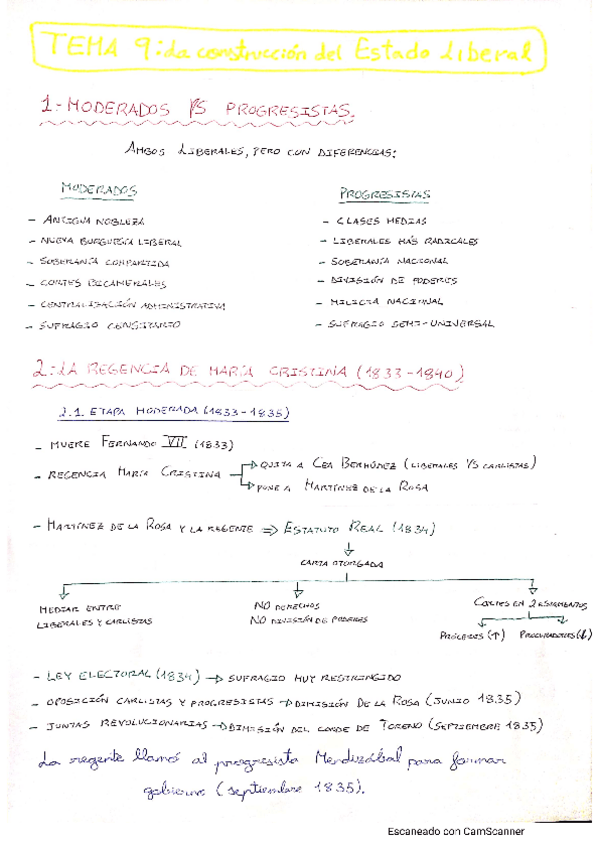 TEMA 9: La construcción del Estado Liberal
1- MODERADOS VS PROGRESISTAS.
AMBOS LIBERALES, PERO CON DIFERENCIAS:
MODERADOS
- ANTIGUA NOBLEZA
- NUEVA BURGUESÍA LIBERAL
- SOBERANÍA COMPARTIDA
- CORTES BICAMERALES
- CENTRALIZACIÓN ADMINISTRATIVA
- SUFRAGIO CENSITARIO
PROGRESISTAS
- CLASES MEDIAS
- LIBERALES MÁS RADICALES
- SOBERANÍA NACIONAL
- DIVISIÓN DE PODERES
- MILICIA NACIONAL
- SUFRAGIO SEMI-UNIVERSAL
2: LA REGENCIA DE MARÍA CRISTINA (1833-1840)
2.1. ETAPA MODERADA (1833-1835)
- MUERE FERNANDO VII (1833)
- REGENCIA MARÍA CRISTINA → QUITA A CEA BERMÚDEZ (LIBERALES VS CARLISTAS)
→ PONE A MARTÍNEZ DE LA ROSA
- MARTÍNEZ DE LA ROSA Y LA REGENTE ⇒ ESTATUTO REAL (1834)
CARTA OTORGADA
MEDIAR ENTRE
LIBERALES Y CARLISTAS
NO DERECHOS
NO DIVISIÓN DE PODERES
CORTES EN 2 ESTAMENTOS
PRÓCERES (↑) PROCURADORES (↓)
- LEY ELECTORAL (1834) → SUFRAGIO MUY RESTRINGIDO
- OPOSICIÓN CARLISTAS Y PROGRESISTAS → DIMISIÓN DE LA ROSA (JUNIO 1835)
- JUNTAS REVOLUCIONARIAS → DIMISIÓN DEL CONDE DE TORENO (SEPTIEMBRE 1835)
La regente llamó al progresista Mendizábal para formar
gobierno (septiembre 1835).
Escaneado con CamScanner